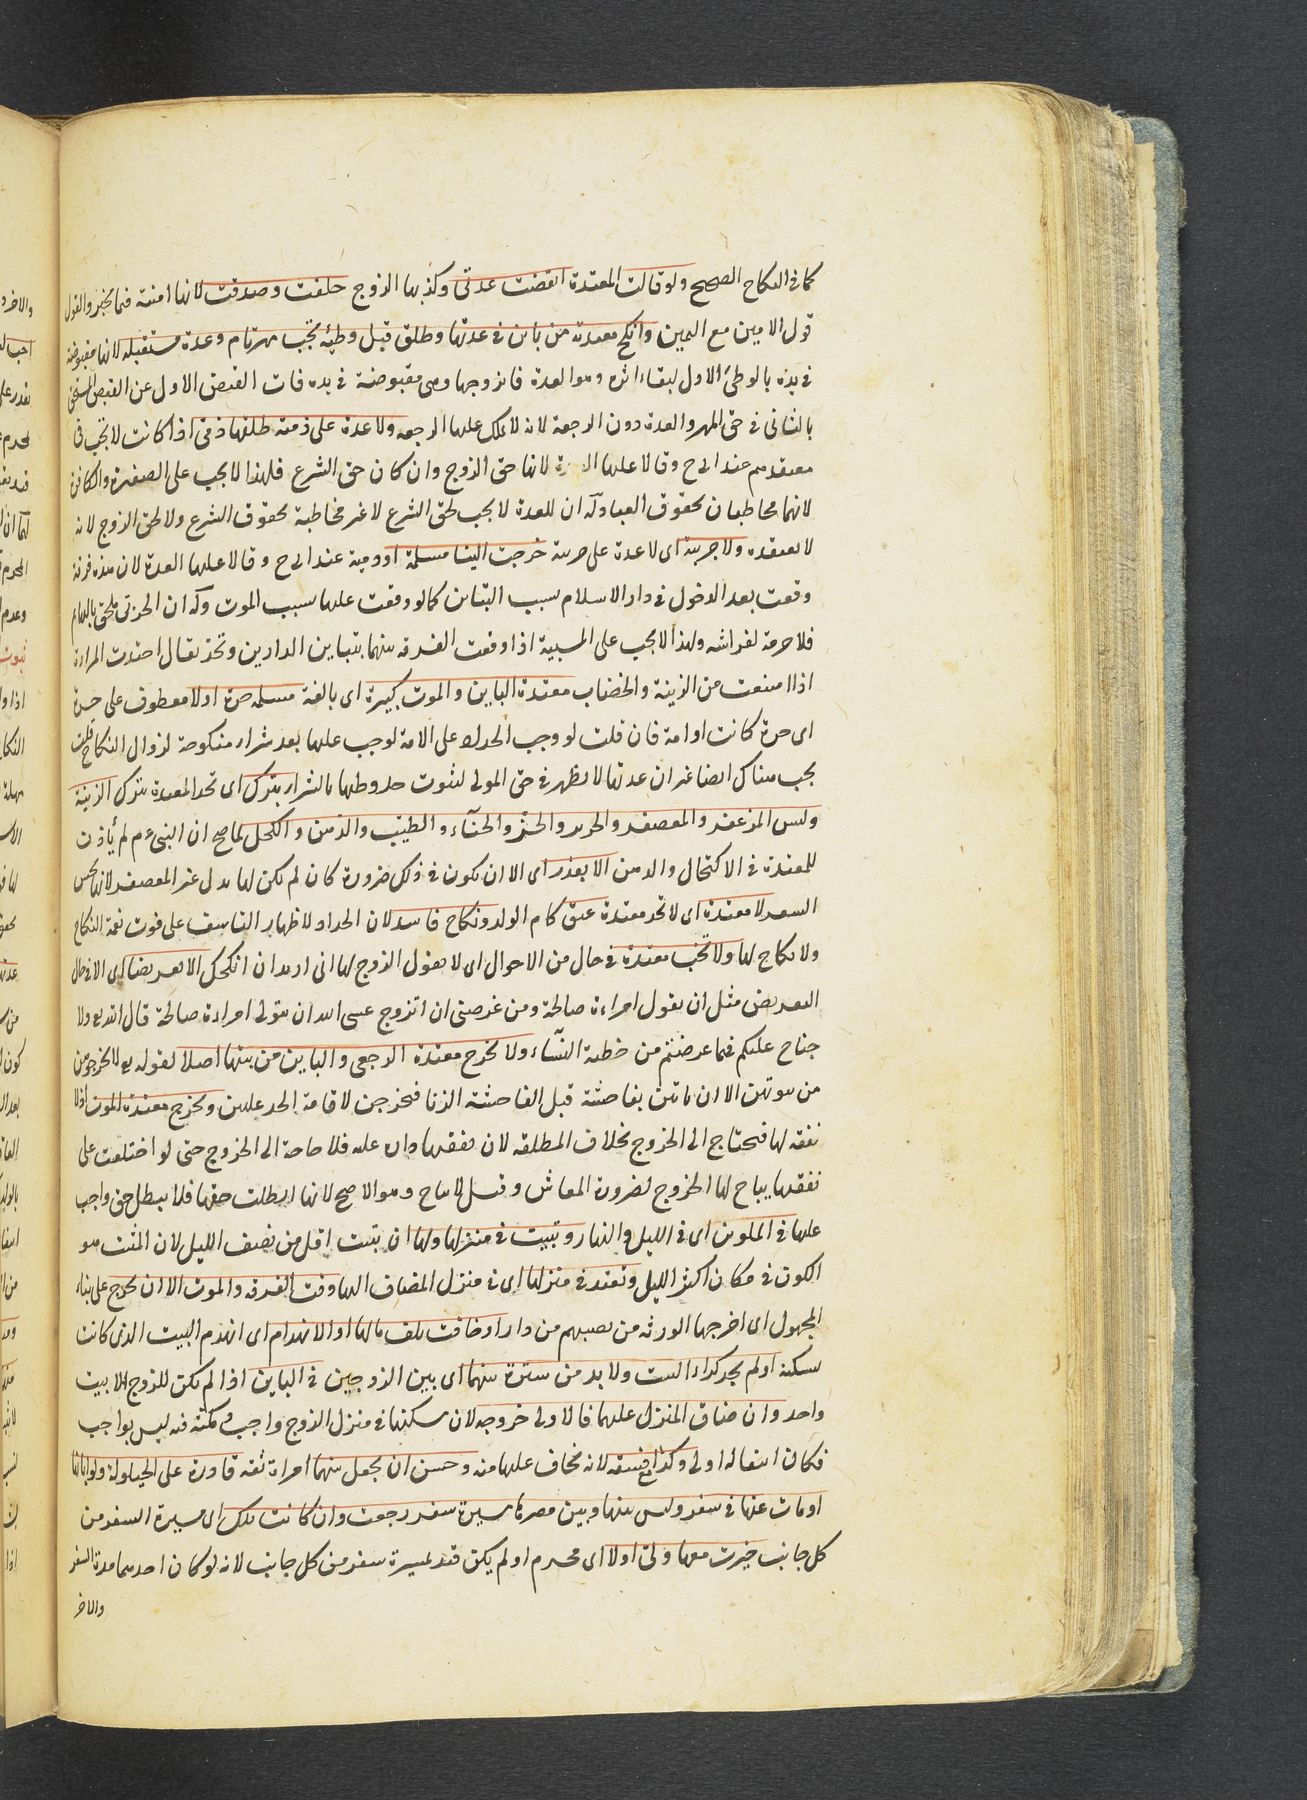 كما في النكاح الصحيح ولو قالت المعتدة انقضت عدتي وكذبها الزوج حلفت وصدقت لانها امينة فيما تخبر والقول
قول الامين مع اليمين وانكح معتدة من باين في عدتها وطلق قبل وطئه تجب مهر تام وعدة مستقبلة لانها مقبوضة
في يده بالوطئ الاول لبقاء اثره وهو العدة فاذا تزوجها وهي مقبوضة في يده فات القبض الاول عن القبض المستحق
بالثاني في حق المهر والعدة دون الرجعة لانه لا يملك عليها الرجعة ولا عدة على ذمية طلقها ذمي اذا كانت لا تجب في
معتقدهم عند ابي ح وقالا عليها لانها حق الزوج وان كان حق الشرع فلهذا لا يجب على الصغيرة والكافرة
لانهما مخاطبان بحقوق العباد وله ان للعدة لا يجب لحق الشرع لا غير مخاطبة بحقوق الشرع ولا لحق الزوج لانه
لا يعتقده ولا حربية اى لا عدة على حربية خرجت الينا مسلمة او ذمية عند ابي ح وقالا عليها العدة لان هذه فرقة
وقعت بعد الدخول في دار الاسلام بسبب التباين كما لو وقعت عليها بسبب الموت وله ان الحربي ملحق بالبهائم
فلا حرمة لفراشه ولهذا لا يجب على المسبية اذا وقعت الفرقة بينهما بتباين الدارين وتحد يقال احتدت المراة
اذا امتنعت من الزينة والخضاب معتدة الباين والموت كبيرة اى بالغة مسلمة حرة او لا معطوف على حرة
اى حرة كانت او امة فان قلت لو وجب الحداد على الامة لوجب عليها بعد شراء منكوحة لزوال النكاح قلت
يجب هناك ايضا غير ان عدتها لا يظهر في حق المولى لثبوت حل وطيها بالشراء بترك اى تحد المعتدة بترك الزينة
ولبس المزعفر والمعصفر والحرير والخز والحناء والطيب والدهن والكحل لما صح ان النبي عم لم يأذن
للمعتدة في الاكتحال والدهن الا بعذر اى الا ان يكون في ذلك ضرورة كان لم يكن لها بدل غير المعصفر لانها تحس
السعر لا معتدة اى لا تحد معتدة عتق كام الولد ونكاح فاسد لان الحداد لاظهار التاسف على فوت نعمة النكاح
ولا نكاح لها ولا تخطب معتدة في حال من الاحوال اى لا يقول الزوج لها انى اريد ان انكحك الا تعريضا اى الا في حال
التعريض مثل ان يقول امراءة صالحة ومن غرضى ان اتزوج عسى الله ان يتولى امراءة صالحة قال الله تع ولا
جناح عليكم فيما عرضتم من خطبة النساء ولا تخرج معتدة الرجعي والباين من بيتها اصلا لقوله تع لا تخرجوهن
من بيوتهن الا ان ياتين بفاحشة قيل الفاحشة الزنا فتخرجن لاقامة الحد عليهن وتخرج معتدة الموت اذ لا
نفقة لها فتحتاج الى الخروج بخلاف المطلقة لان نفقتها دارة عليه فلا حاجة الى الخروج حتى لو اختلعت على
نفقتها يباح لها الخروج لضرورة المعاش وقيل لا يباح وهو الاصح لانها ابطلت حقها فلا يبطل حق واجب
عليها في الملوين اى في الليل والنهار وتبيت في منزلها ولها ان تبيت اقل من نصف الليل لان المثبت هو
الكون في مكان اكثر الليل وتعتد في منزلها اى في منزل المضاف اليها وقت الفرقة والموت الا ان تخرج على بناء
المجهول اى اخرجها الورثة من نصيبهم من دار او خافت تلف مالها او الانهدام اى انهدم البيت الذى كانت
سكنه او لم تجد كراء البيت ولا بد من سترة بينهما اى بين الزوجين في الباين اذا لم يكن للزوج الا بيت
واحد وان ضاق المنزل عليهما فالاولى خروجه لان سكنها في منزل الزوج واجب ومكثه فيه ليس بواجب
فكان انتقاله اولى وكذا مع فسقه لانه يخاف عليها منه وحسن ان يجعل بينهما امراة ثقة قادرة على الحيلولة ولو ابانها
او مات عنها في سفر وليس بينها وبين مصرها مسيرة سفر رجعت وان كانت تلك اى مسيرة السفر من
كل جانب خيرت معها ولى او لا اى محرم او لم يكن قيد بمسيرة سفر من كل جانب لانه لو كان احدهما مدة السفر
والاخر